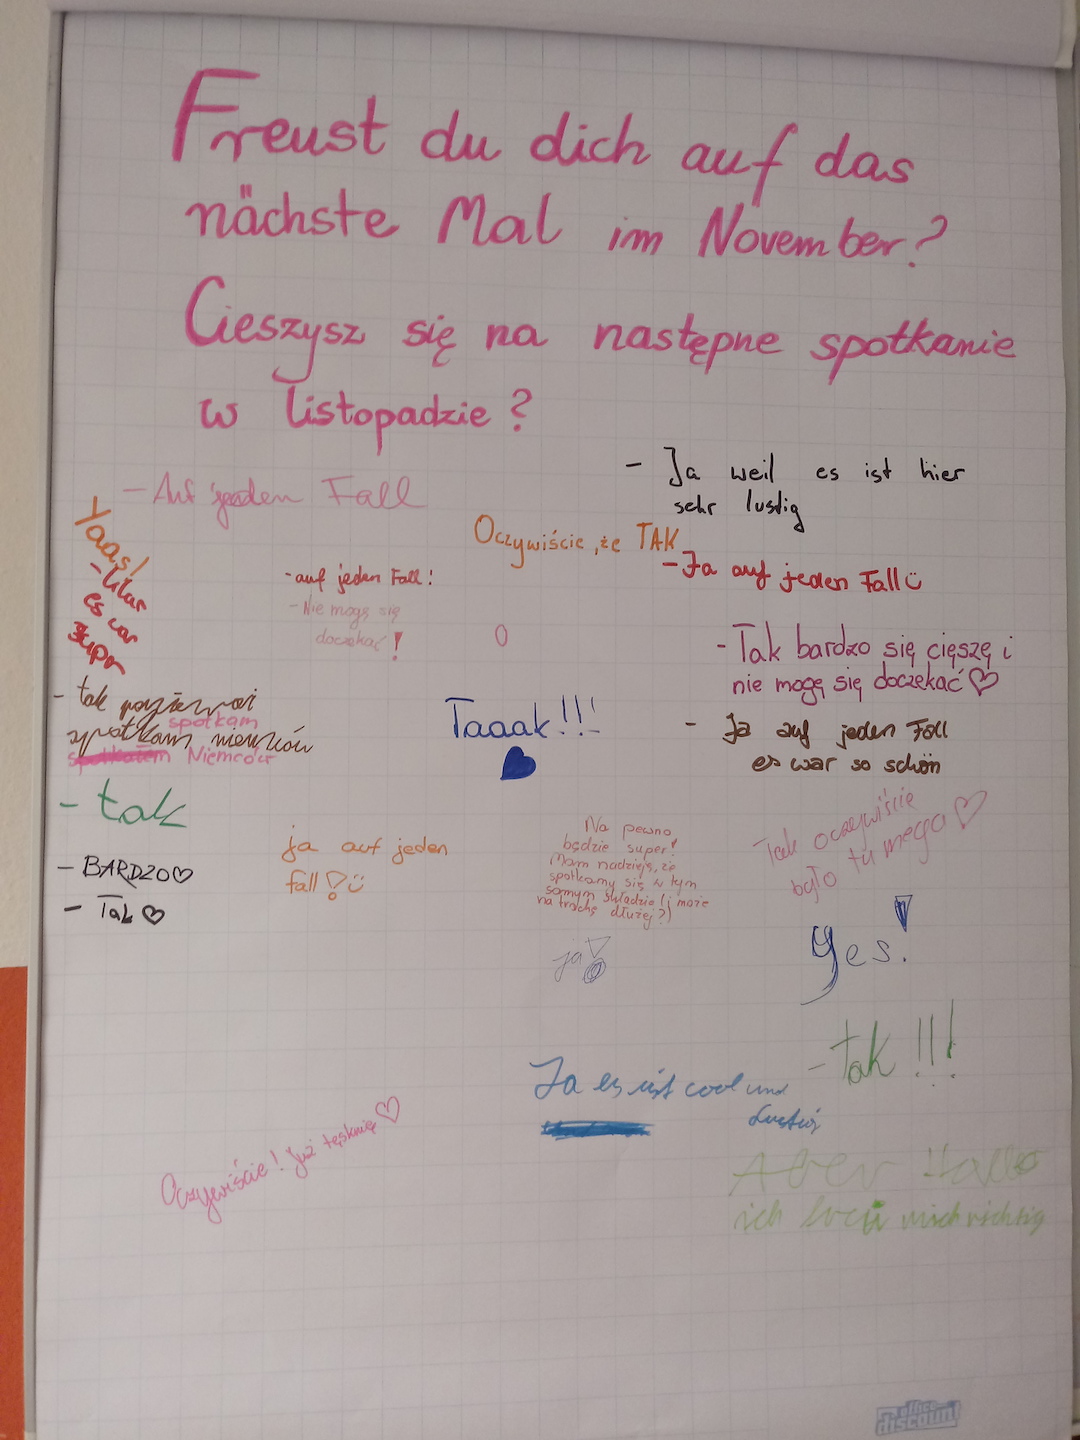 Freust du dich auf das
nächste Mal im November?
Cieszysz się na następne spotkanie
w listopadzie?
- Auf jeden Fall
- Ja weil es ist hier
sehr lustig
Yaas!
Oczywiście, że TAK
- Ja auf jeden Fall ü
- klar
es war
super
- auf jeden Fall!
- Nie mogę się
doczekać!
0
- Tak bardzo się cięszę i
nie mogę się doczekać ♡
- tak
spotkam
spotkam niemców
Niemców
Taaak!!!
- Ja auf jeden Fall
es war so schön
- tak
- BARDZO ♡
- Tak ♡
ja auf jeden
fall! ü
Na pewno
będzie super!
Mam nadzieję, że
spotkamy się w tym
samym składzie (i może
na trochę dłużej?)
Tak oczywiście
było tu mega ♡
ja!
Yes!
- Tak!!!
Ja es ist cool und
Lustig
Oczywiście! Już tęsknię ♡
Aber Hallo
ich freu mich richtig
office
discount